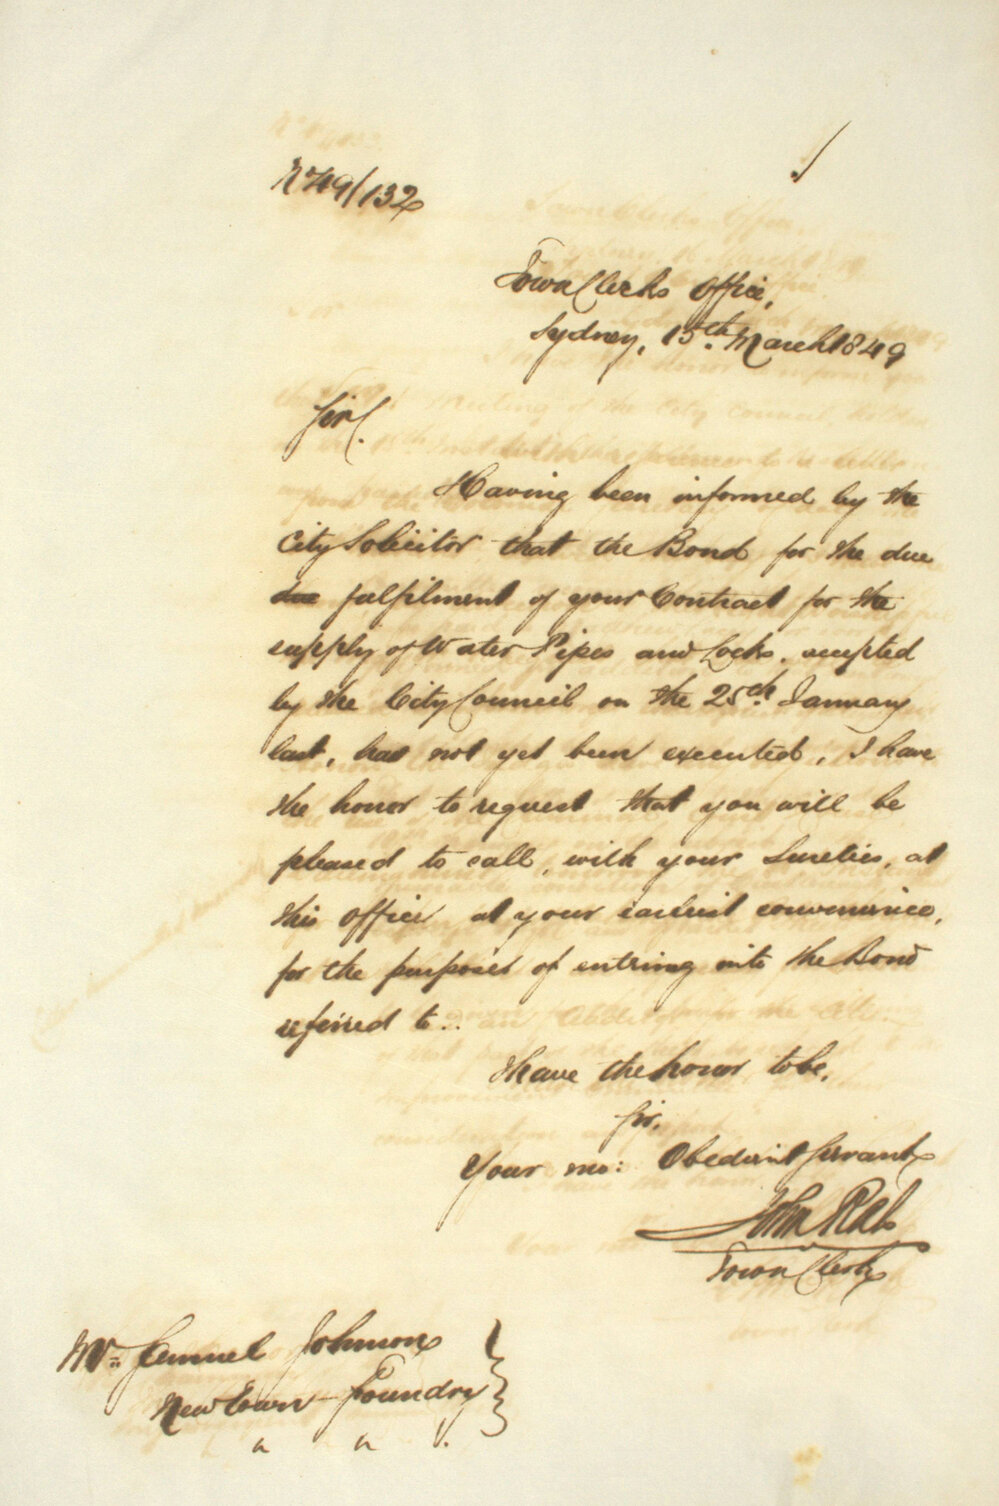 No 49/132
Town Clerks Office,
Sydney, 15th March 1849
Sir,
Having been informed by the
City Solicitor that the Bond for the due
due fulfilment of your Contract for the
supply of Water Pipes and Locks, accepted
by the City Council on the 25th January
last, has not yet been executed, I have
the honor to request that you will be
pleased to call, with your Sureties, at
this Office at your earliest convenience,
for the purposes of entring into the Bond
referred to..
I have the honor to be,
Sir,
Your mo: Obedient Servant
John Rae
Town Clerk
Mr. Samuel Johnson
New Town Foundry
" " .